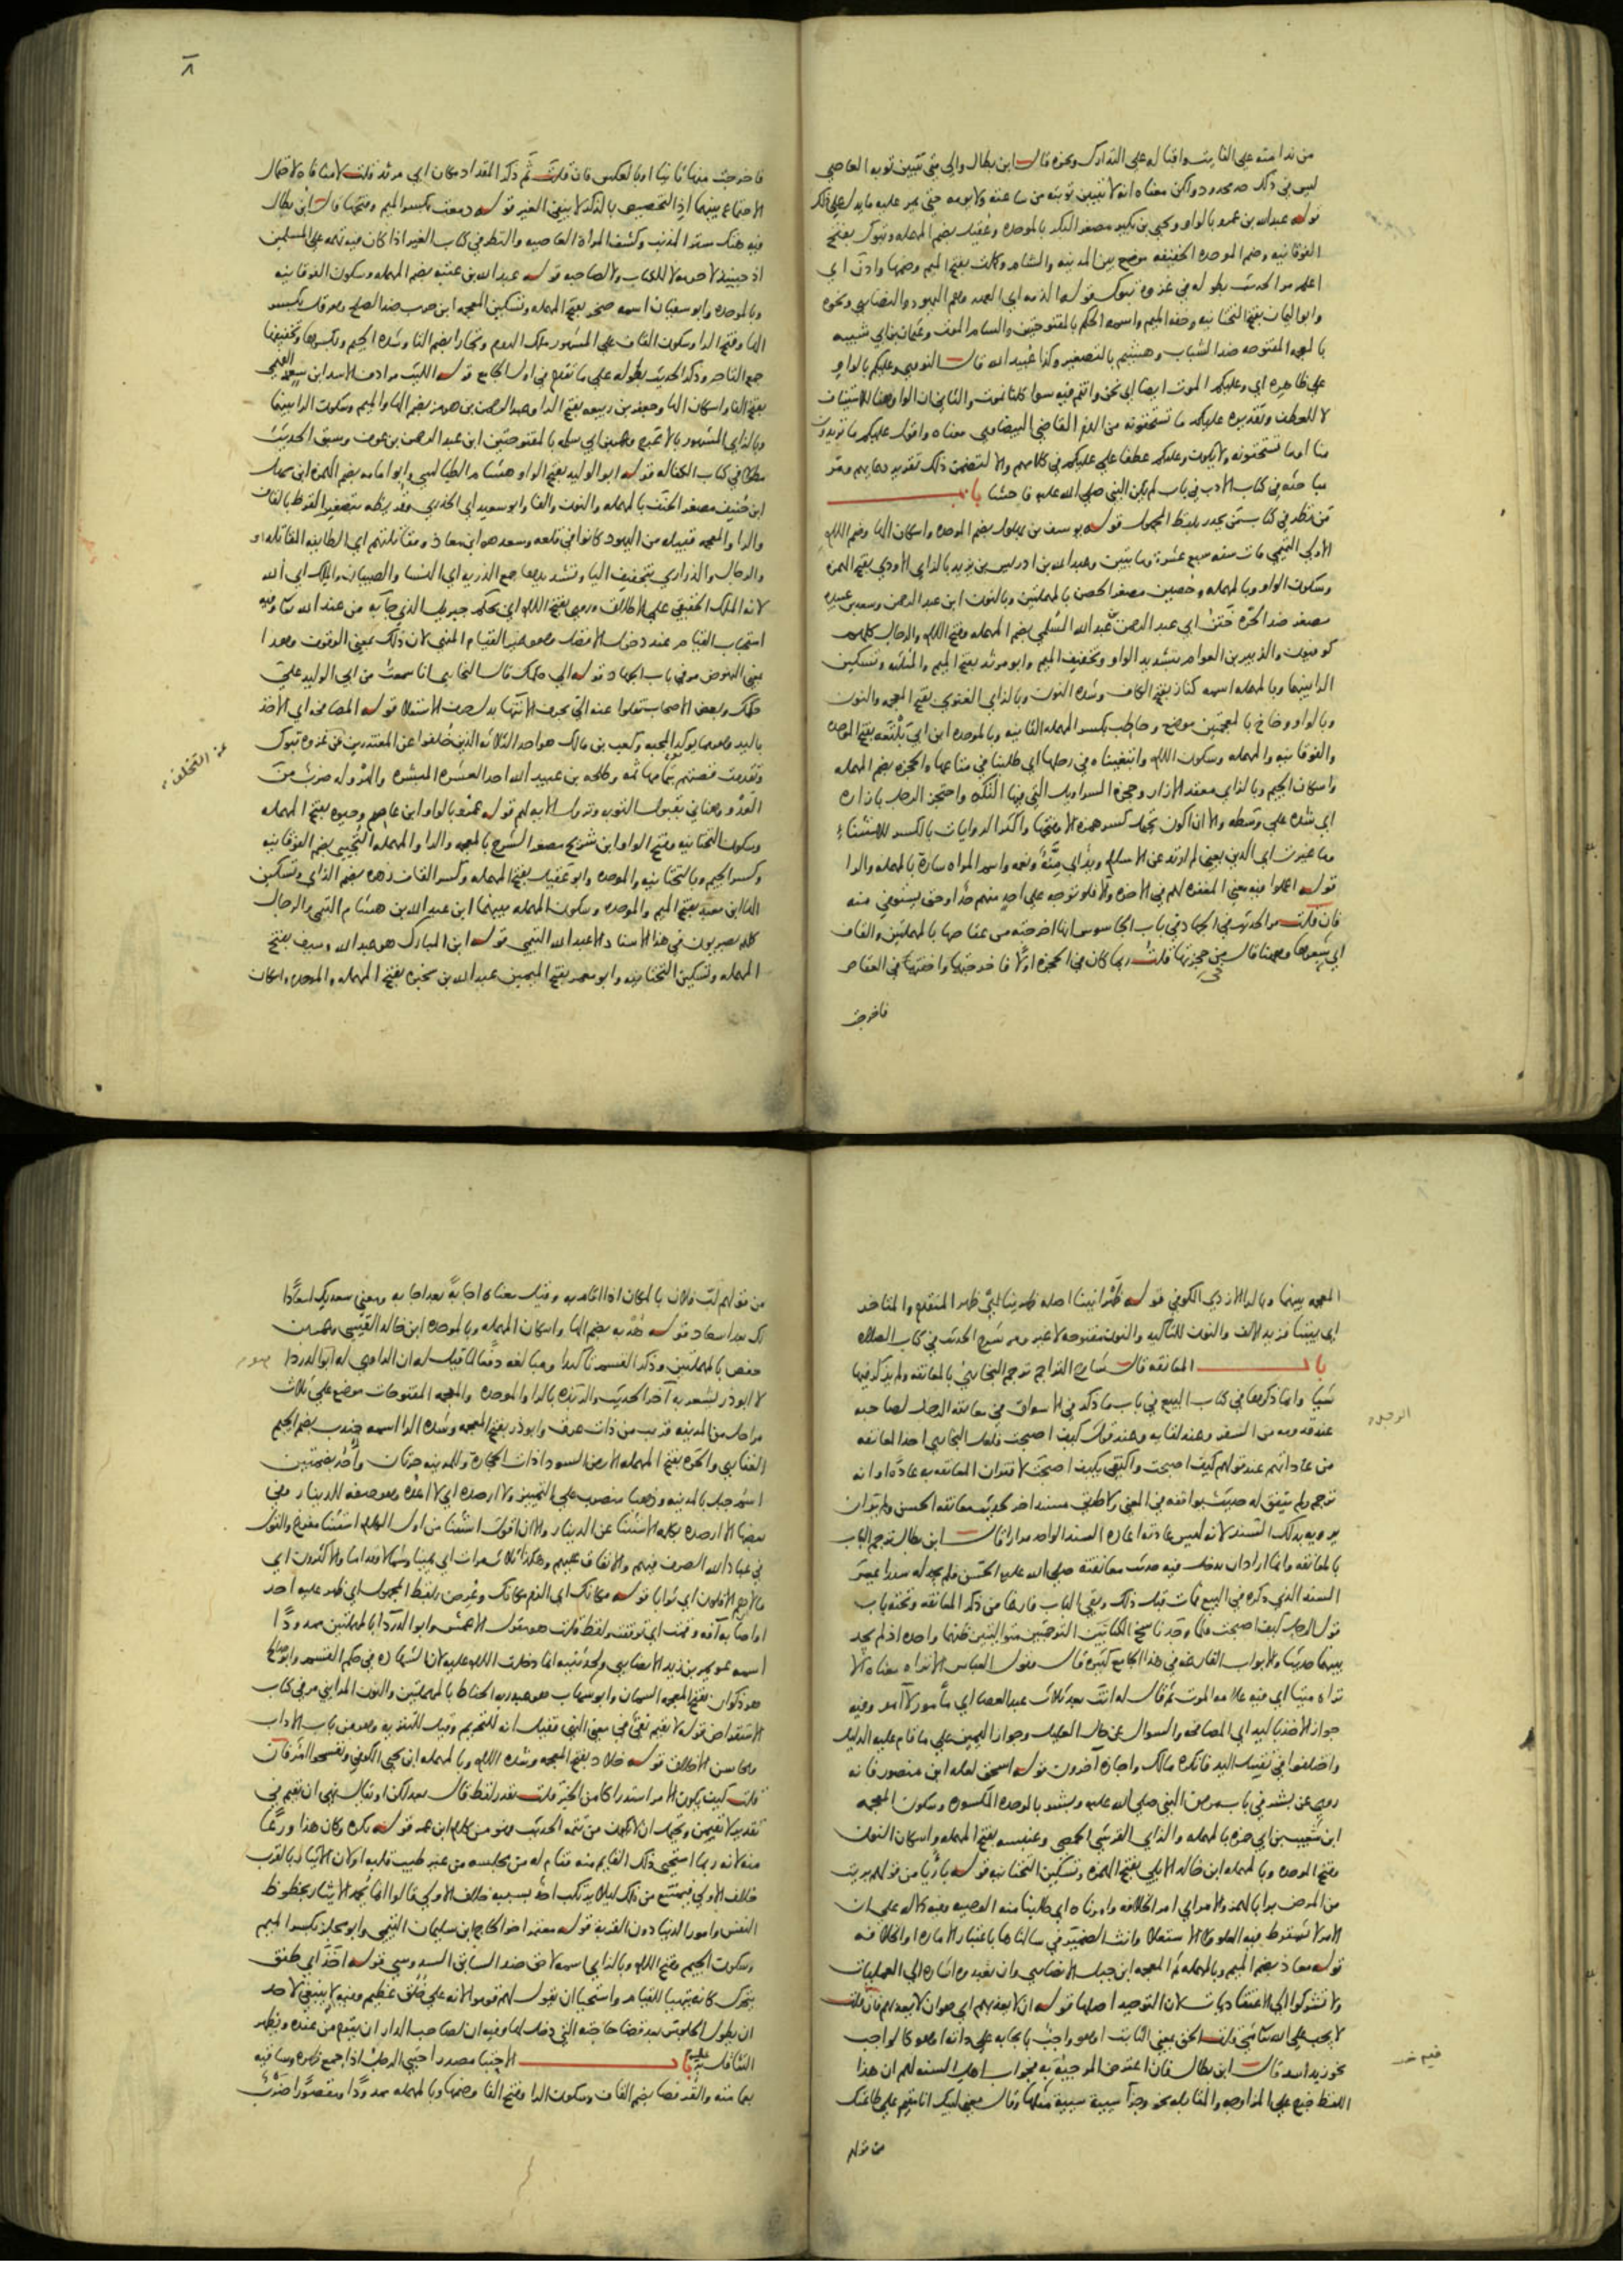 من ندامته على الفايت واقباله على التدارك ونحوه قال ابن بطال والى متى تتبين توبه العاصي
ليس في ذلك حد محدود ولكن معناه انه لا تتبين توبته من ساعته ولا يومه حتى يمر عليه ما يدل على ذلك
قوله عبدالله بن عمرو بالواو ويحيى بن بكير مصغر البكر بالموحده وعقيل بضم المهمله وتبوك بفتح
الفوقانيه وضم الموحده الخفيفه موضع بين المدينه والشام وكلمت بفتح الميم وضمها وآذن اي
اعلم مر الحديث بطوله في غزوه تبوك قوله الذمه اي العهد وهم اليهود والنصارى ونحوه
وابو اليمان بفتح التحتانيه وخفه الميم واسمه الحكم بالمفتوحتين والسام الموت وعثمان بن ابي شيبه
بالمعجمه المفتوحه ضد الشباب وهشيم بالتصغير وكذا عبيد الله قال النووي وعليكم بالواو
على ظاهره اي وعليكم الموت ايضا اي نحن وانتم فيه سوا كلنا نموت والثاني ان الواو هنا للاستيناف
لا للعطف وتقديره عليكم ما تستحقونه من الذم القاضي البيضاوي معناه واقول عليكم ما تريدون
منا او ما تستحقونه ولا يكون وعليكم عطفا على عليكم في كلامهم والا لتضمن ذلك تقرير دعايهم ومر
مباحثه في كتاب الادب في باب لم يكن النبي صلى الله عليه فاحشا باب
من نظر في كتاب من يحذر بلفظ المجهول قوله يوسف بن بهلول بضم الموحده واسكان الها وضم اللام
الاولى التيمي مات سنه سبع عشرة ومايتين وعبدالله بن ادريس بن يزيد بالزاي الاودي بفتح الهمزه
وسكون الواو وبالمهمله وحصين مصغر الحصن بالمهملتين وبالنون ابن عبد الرحمن وسعد بن عبيده
مصغر ضد الحره ختن ابي عبد الرحمن عبد الله السلمي بضم المهمله وفتح اللام والرجال كلهم
كوفيون والزبير بن العوام بتشديد الواو وتخفيف الميم وابو مرثد بفتح الميم والمثلثه وتسكين
الرا بينهما وبالمهمله اسمه كناز بفتح الكاف وشده النون وبالزاي الغنوي بفتح المعجمه والنون
وبالواو وخاخ بالمعجمتين موضع وحاطب بكسر المهمله الثانيه وبالموحده ابن ابي بلتعه بفتح الموحده
والفوقانيه والمهمله وسكون اللام وابتغينا في رحلها اي طلبنا في متاعها والحجزه بضم المهمله
واسكان الجيم وبالزاي معقد الازار وحجزة السراويل التي فيها التكه واحتجز الرجل بازاره
اي شده على وسطه والا ان اكون يحتمل كسر همزه الا وفتحها واكثر الروايات بالكسر للاستثناء
وما غيرت اي الدين يعني لم ارتد عن الاسلام ويد اي منة ونعمه واسم المراه سارة بالمهمله والرا
قوله اعملوا فيه معنى المغفره لهم في الاخره والا فلو توجه على احد منهم حد او حق يستوفى منه
فان قلت مر الحديث في الجهاد في باب الجاسوس انها اخرجته من عقاصها بالمهملتين والقاف
اي شعرها وههنا قال من حجزتها قلت ربما كان في الحجزه اولا فاخرجتها واخفتها في العقاص
فاخرجت
٨
فاخرجت منها ثانيا او بالعكس فان قلت ثم ذكر المقداد مكان ابي مرثد قلت لا منافاه لاحتمال
الاجتماع بينهما اذ التخصيص بالذكر لا ينفي الغير قوله ومعتب بكسر الميم وفتحها قال ابن بطال
فيه هتك ستر المذنب وكشف المراه العاصيه والنظر في كتاب الغير اذا كان فيه تهمه على المسلمين
اذ حينئذ لا حرمه لا للكتاب ولا لصاحبه قوله عبد الله بن عتبه بضم المهمله وسكون الفوقانيه
وبالموحده وابو سفيان اسمه صخر بفتح المهمله وتسكين المعجمه ابن حرب ضد الصلح وهرقل بكسر
الها وفتح الرا وسكون القاف على المشهور ملك الروم وتجار بضم التا وشده الجيم وبكسرها وتخفيفها
جمع التاجر وذكر الحديث بطوله على ما تقدم في اول الجامع قوله الليث مرادف الاسد ابن سعد الفهمي
بفتح الفا واسكان الها وجعفر بن ربيعه بفتح الرا وعبد الرحمن بن هرمز بضم الها والميم وسكون الرا بينهما
وبالزاي المشهور بالاعرج وعمر بن ابي سلمه بالمفتوحتين ابن عبد الرحمن بن عوف وسبق الحديث
مطولا في كتاب الكفاله قوله ابو الوليد بفتح الواو هشام الطيالسي وابو امامه بضم الهمزه ابن سهل
ابن حنيف مصغر الحنف بالمهمله والنون والفا وابو سعيد اي الخدري وقريظه بتصغير القرظ بالقاف
والرا والمعجمه قبيله من اليهود كانوا في قلعه وسعد هو ابن معاذ ومقاتلتهم اي الطايفه المقاتله
والرجال والذراري بتخفيف اليا وتشديدها جمع الذريه اي النسا والصبيان والملك اي الله
لانه الملك الحقيقي على الاطلاق وروي بفتح اللام اي بحكم جبريل الذي جا به من عند الله تعالى وفيه
استحباب القيام عند دخول الافضل وهو غير القيام المنهي لان ذلك بمعنى الوقوف وهذا
بمعنى النهوض مر في باب الجهاد قوله الى حكمك قال البخاري انا سمعت من ابي الوليد على
حكمك وبعض الاصحاب نقلوا عنه الى بحرف الانتها بدل حرف الاستعلا قوله المصافحه اي الاخذ
باليد وهو مما يوكد المحبه وكعب بن مالك هو احد الثلاثه الذين خلفوا عن المعتذرين عن غزوه تبوك
عن التخلف
وتقدمت قصتهم بتمامها ثمه وطلحه بن عبيد الله احد العشره المبشره والهروله ضرب من
العدو وهناني بقبول التوبه ونزول الايه لهم قوله عمرو بالواو ابن عاصم وحيوه بفتح المهمله
وسكون التحتانيه وفتح الواو ابن شريح مصغر الشرح بالمعجمه والرا والمهمله التجيبي بضم الفوقانيه
وكسر الجيم وبالتحتانيه والموحده وابو عقيل بفتح المهمله وكسر القاف زهره بضم الزاي وتسكين
الها ابن معبد بفتح الميم والموحده وسكون المهمله بينهما ابن عبد الله بن هشام التيمي والرجال
كلهم مصريون في هذا الاسناد الا عبد الله التيمي قوله ابن المبارك هو عبد الله وسيف بفتح
المهمله وتسكين التحتانيه وابو معمر بفتح الميمين عبد الله بن سخبره بفتح المهمله والموحده واسكان
المعجمه بينهما وبالرا الازدي الكوفي قوله ظهرانينا اصله ظهرينا بلفظ ظهر المتقدم والمتاخر
اي بيننا فزيد الالف والنون للتاكيد والنون مفتوحه لا غير ومر شرح الحديث في كتاب الصلاه
باب المعانقه قال شارح التراجم ترجم البخاري بالمعانقه ولم يذكر فيها
شيا وانما ذكرها في كتاب البيع في باب ما ذكر في الاسواق في معانقه الرجل لصاحبه
عند قدومه من السفر وعند لقايه وعند قوله كيف اصبحت فلعل البخاري اخذ المعانقه
من عاداتهم عند قولهم كيف اصبحت واكتفى بكيف اصبحت لاقتران المعانقه به عادة او انه
ترجم ولم يتفق له حديث يوافقه في المعنى ولا طريق مسند اخر لحديث معانقه الحسن ولم ير ان
يرويه بذلك السند لانه ليس عادته اعاده السند الواحد مرارا قال ابن بطال ترجم الباب
بالمعانقه وانما اراد ان يدخل فيه حديث معانقته صلى الله عليه الحسن فلم يجد له سندا غير
السند الذي ذكره في البيع فمات قبل ذلك وبقي الباب فارغا من ذكر المعانقه وتحته باب
قول الرجل كيف اصبحت فلما وجد ناسخ الكتاب الترجمتين متواليتين ظنهما واحده اذ لم يجد
بينهما حديثا والابواب الفارغه في هذا الجامع كثيره قال وقول العباس الا تراه معناه الا
تراه ميتا اي فيه علامه الموت ثم قال له انت بعد ثلاث عبد العصا اي مأمور لا آمر وفيه
جواز الاخذ باليد اي المصافحه والسوال عن حال العليل وجواز اليمين على ما قام عليه الدليل
واختلفوا في تقبيل اليد فانكره مالك واجازه آخرون قوله اسحق لعله ابن منصور فانه
روى عن بشر في باب مرض النبي صلى الله عليه وبشر بالموحده المكسوره وسكون المعجمه
ابن شعيب بن ابي حمزه بالمهمله والزاي القرشي الحمصي وعنبسه بفتح المهمله واسكان النون
وفتح الموحده وبالمهمله ابن خالد الايلي بفتح الهمزه وتسكين التحتانيه قوله بارئا من قولهم بريت
من المرض برا بالهمز والامر اي امر الخلافه وامرناه اي طلبنا منه الوصيه وفيه دلاله على ان
الامر لا يشترط فيه العلو ولا الاستعلا وانث الضمير في سالناها باعتبار الاماره او الخلافه
قوله معاذ بضم الميم وبالمهمله ثم المعجمه ابن جبل الانصاري وان يعبدوه اشاره الى العمليات
ولا تشركوا الى الاعتقاديات لان التوحيد اصلها قوله ان لا يعذبهم اي هو ان لا يعذبهم فان قلت
لا يجب على الله تعالى شي قلت الحق بمعنى الثابت او هو واجب بايجابه على ذاته او هو كالواجب
نحو زيد اسد قال ابن بطال فان اعترض المرجئة به فجواب اهل السنه لهم ان هذا
اللفظ خرج على المزاوجه والمقابله نحو وجزا سيئة سيئة مثلها وقال معنى لبيك انا مقيم على طاعتك
من قولهم
من قولهم لب فلان بالمكان اذا اقام به وقيل معناه اجابة بعد اجابه ومعنى سعديك اسعادا
لك بعد اسعاد قوله هدبه بضم الها واسكان المهمله وبالموحده ابن خالد القيسي وعمر بن
حفص بالمهملتين وذكر القسم تاكيدا ومبالغه دفعا لما قيل له ان الراوي له ابو الدردا
لا ابو ذر يشعر به آخر الحديث والربذه بالرا والموحده والمعجمه المفتوحات موضع على ثلاث
مراحل من المدينه قريب من ذات عرق وابو ذر بفتح المعجمه وشده الرا اسمه جندب بضم الجيم
الغفاري والحره بفتح المهمله الارض السودا ذات الحجارة وللمدينه حرتان وأحد بضمتين
اسم جبل بالمدينه وذهبا منصوب على التمييز ولا ارصده اي لا اعده وهو صفه للدينار وفي
بعضها الا ارصده بكلمه الاستثنا عن الدينار والا ان اقول استثنا من اول الكلام استثنا مفرغ والقول
في عباد الله الصرف فيهم والانفاق عليهم وهكذا ثلاث مرات اي يمينا وشمالا وقداما والاكثرون اي
مالا هم الاقلون اي ثوابا قوله مكانك اي الزم مكانك وعرض بلفظ المجهول اي ظهر عليه احد
او اصابه آفه وقمت اي توقفت ولفظ قلت هو مقول الاعمش وابو الدردا بالمهملتين ممدودا
اسمه عويمر بن زيد الانصاري ولحدثنيه انما دخلت اللام عليه لان الشهاده في حكم القسم وابو صالح
هو ذكوان بفتح المعجمه السمان وابو شهاب هو عبد ربه الحناط بالمهملتين والنون المدايني مر في كتاب
الاستقراض قوله لا يقيم نفي في معنى النهي فقيل انه للتحريم وقيل للتنزيه وهو من باب الاداب
ومحاسن الاخلاق قوله خلاد بفتح المعجمه وشده اللام وبالمهمله ابن يحيى الكوفي وتفسحوا فان
قلت كيف يكون الامر استدراكا من الخبر قلت يقدر لفظ قال بعد لكن او يقال نهى ان يقيم في
تقدير لا يقيمن ويحتمل ان لا يكون من تتمه الحديث وهو من كلام ابن عمر قوله يكره وكان هذا ورعا
منه لانه ربما استحيى ذلك القايم منه فقام له من مجلسه من غير طيب قلبه او لان الايثار بالقرب
خلاف الاولى فيمتنع من ذلك ليلا يرتكب احد بسببه خلاف الاولى قالوا انما يحمد الايثار بحظوظ
النفس وامور الدنيا دون القربه قوله معتمر اخو الحاج ابن سليمان التيمي وابو مجلز بكسر الميم
وسكون الجيم وفتح اللام وبالزاي اسمه لاحق ضد السابق السدوسي قوله اخذ اي طفق
يتحرك كانه يتهيا للقيام واستحيا ان يقول لهم قوموا لانه على خلق عظيم وفيه لا ينبغي لاحد
ان يطول الجلوس بعد قضا حاجته التي دخل لها وفيه ان لصاحب الدار ان يقوم من عنده ويظهر
التثاقل به باب الاحتبا مصدر احتبى الرجل اذا جمع ظهره وساقيه
بعمامته والقرفصا بضم القاف وسكون الرا وفتح الفا وضمها وبالمهمله ممدودا ومقصورا ضرب